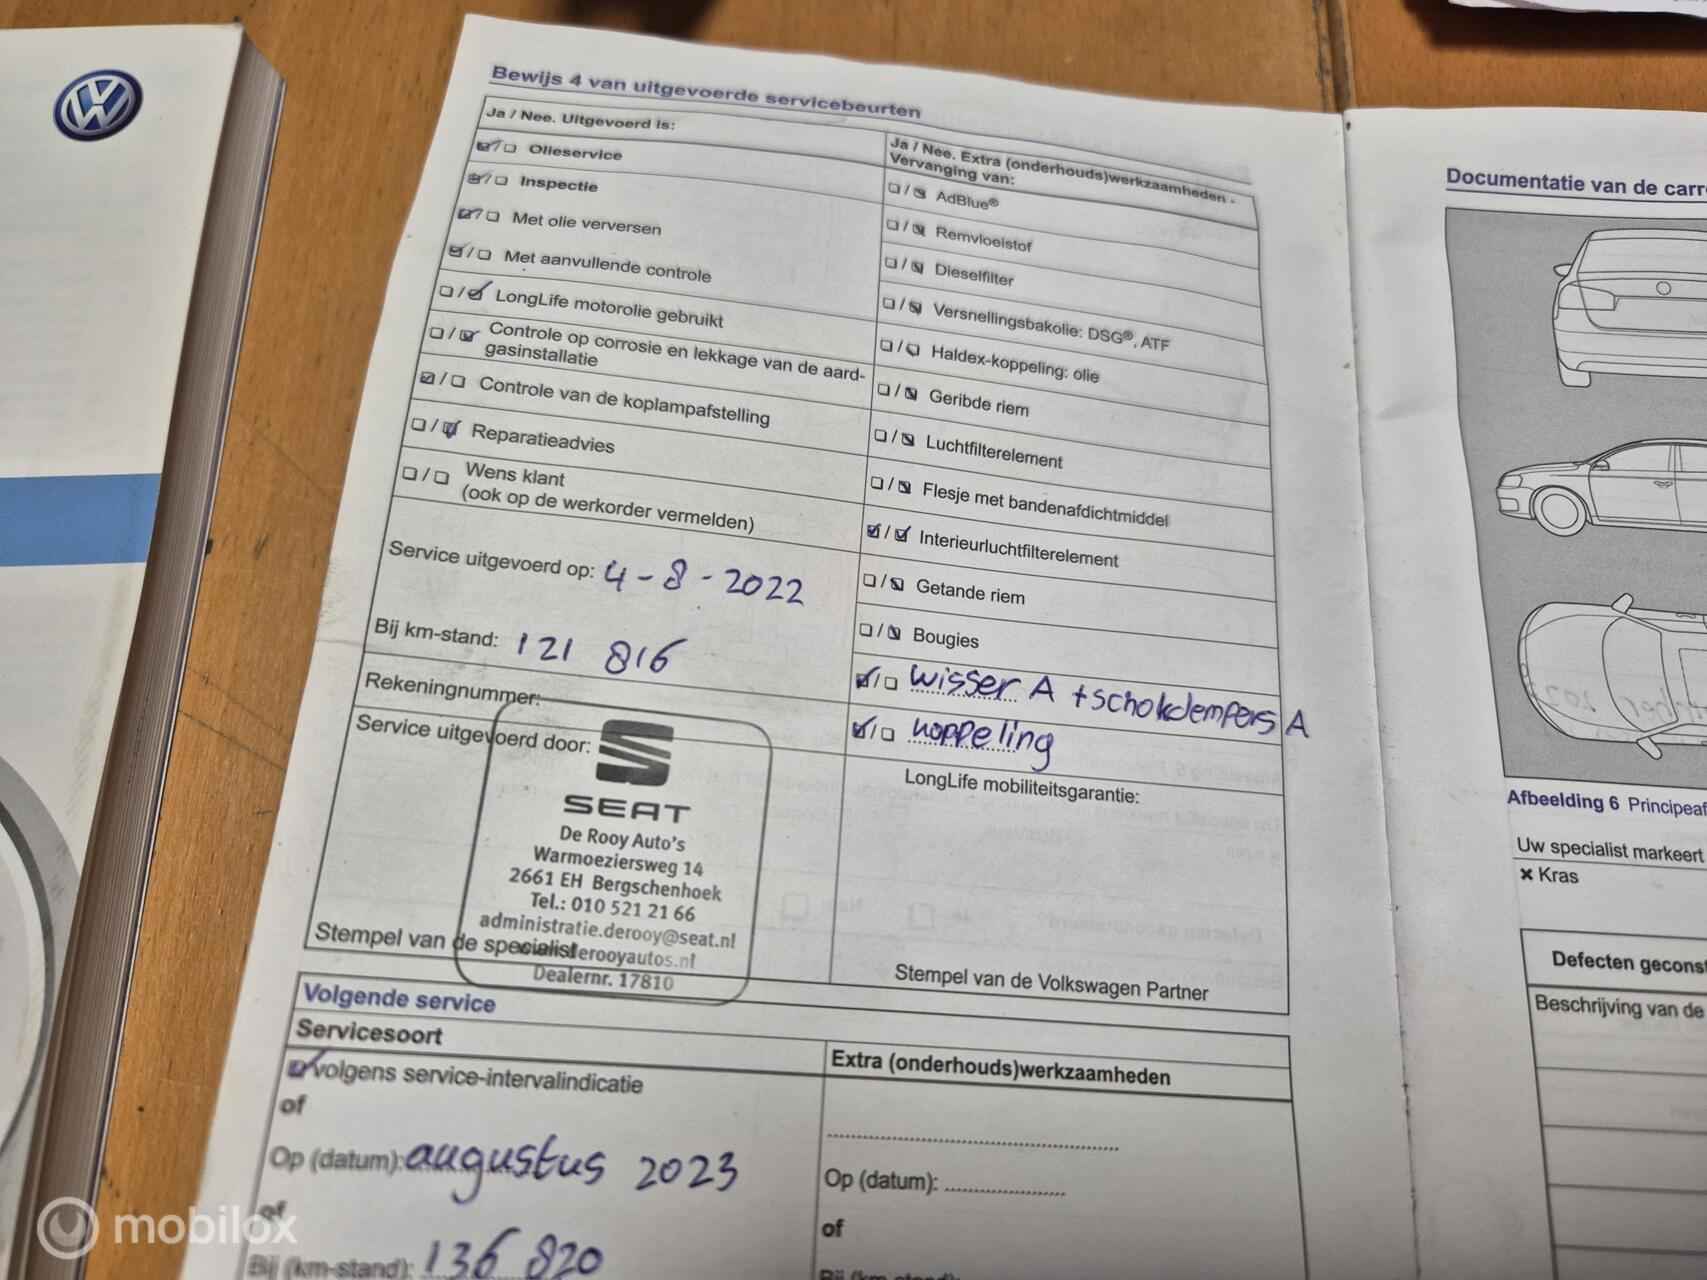 Bewijs 4 van uitgevoerde servicebeurten
Ja / Nee. Uitgevoerd is:
Olieservice
Inspectie
Met olie verversen
Met aanvullende controle
LongLife motorolie gebruikt
Controle op corrosie en lekkage van de aard-
gasinstallatie
Controle van de koplampafstelling
Reparatieadvies
Wens klant
(ook op de werkorder vermelden)
Service uitgevoerd op: 4-8-2022
Bij km-stand: 121 816
Rekeningnummer:
Service uitgevoerd door:
SEAT
De Rooy Auto's
Warmoeziersweg 14
2661 EH Bergschenhoek
Tel.: 010 521 21 66
administratie.derooy@seat.nl
derooyautos.nl
Dealernr. 17810
Stempel van de specialist
Ja / Nee. Extra (onderhouds)werkzaamheden -
Vervanging van:
AdBlue®
Remvloeistof
Dieselfilter
Versnellingsbakolie: DSG®, ATF
Haldex-koppeling: olie
Geribde riem
Luchtfilterelement
Flesje met bandenafdichtmiddel
Interieurluchtfilterelement
Getande riem
Bougies
wisser A + schokdempers A
koppeling
LongLife mobiliteitsgarantie:
Stempel van de Volkswagen Partner
Volgende service
Servicesoort
volgens service-intervalindicatie
of
Op (datum): augustus 2023
of
Bij (km-stand): 136 820
Extra (onderhouds)werkzaamheden
Op (datum):
of
Bij (km-stand):
Documentatie van de carr
Afbeelding 6 Principeaf
Uw specialist markeert
× Kras
Defecten geconst
Beschrijving van de
mobilox